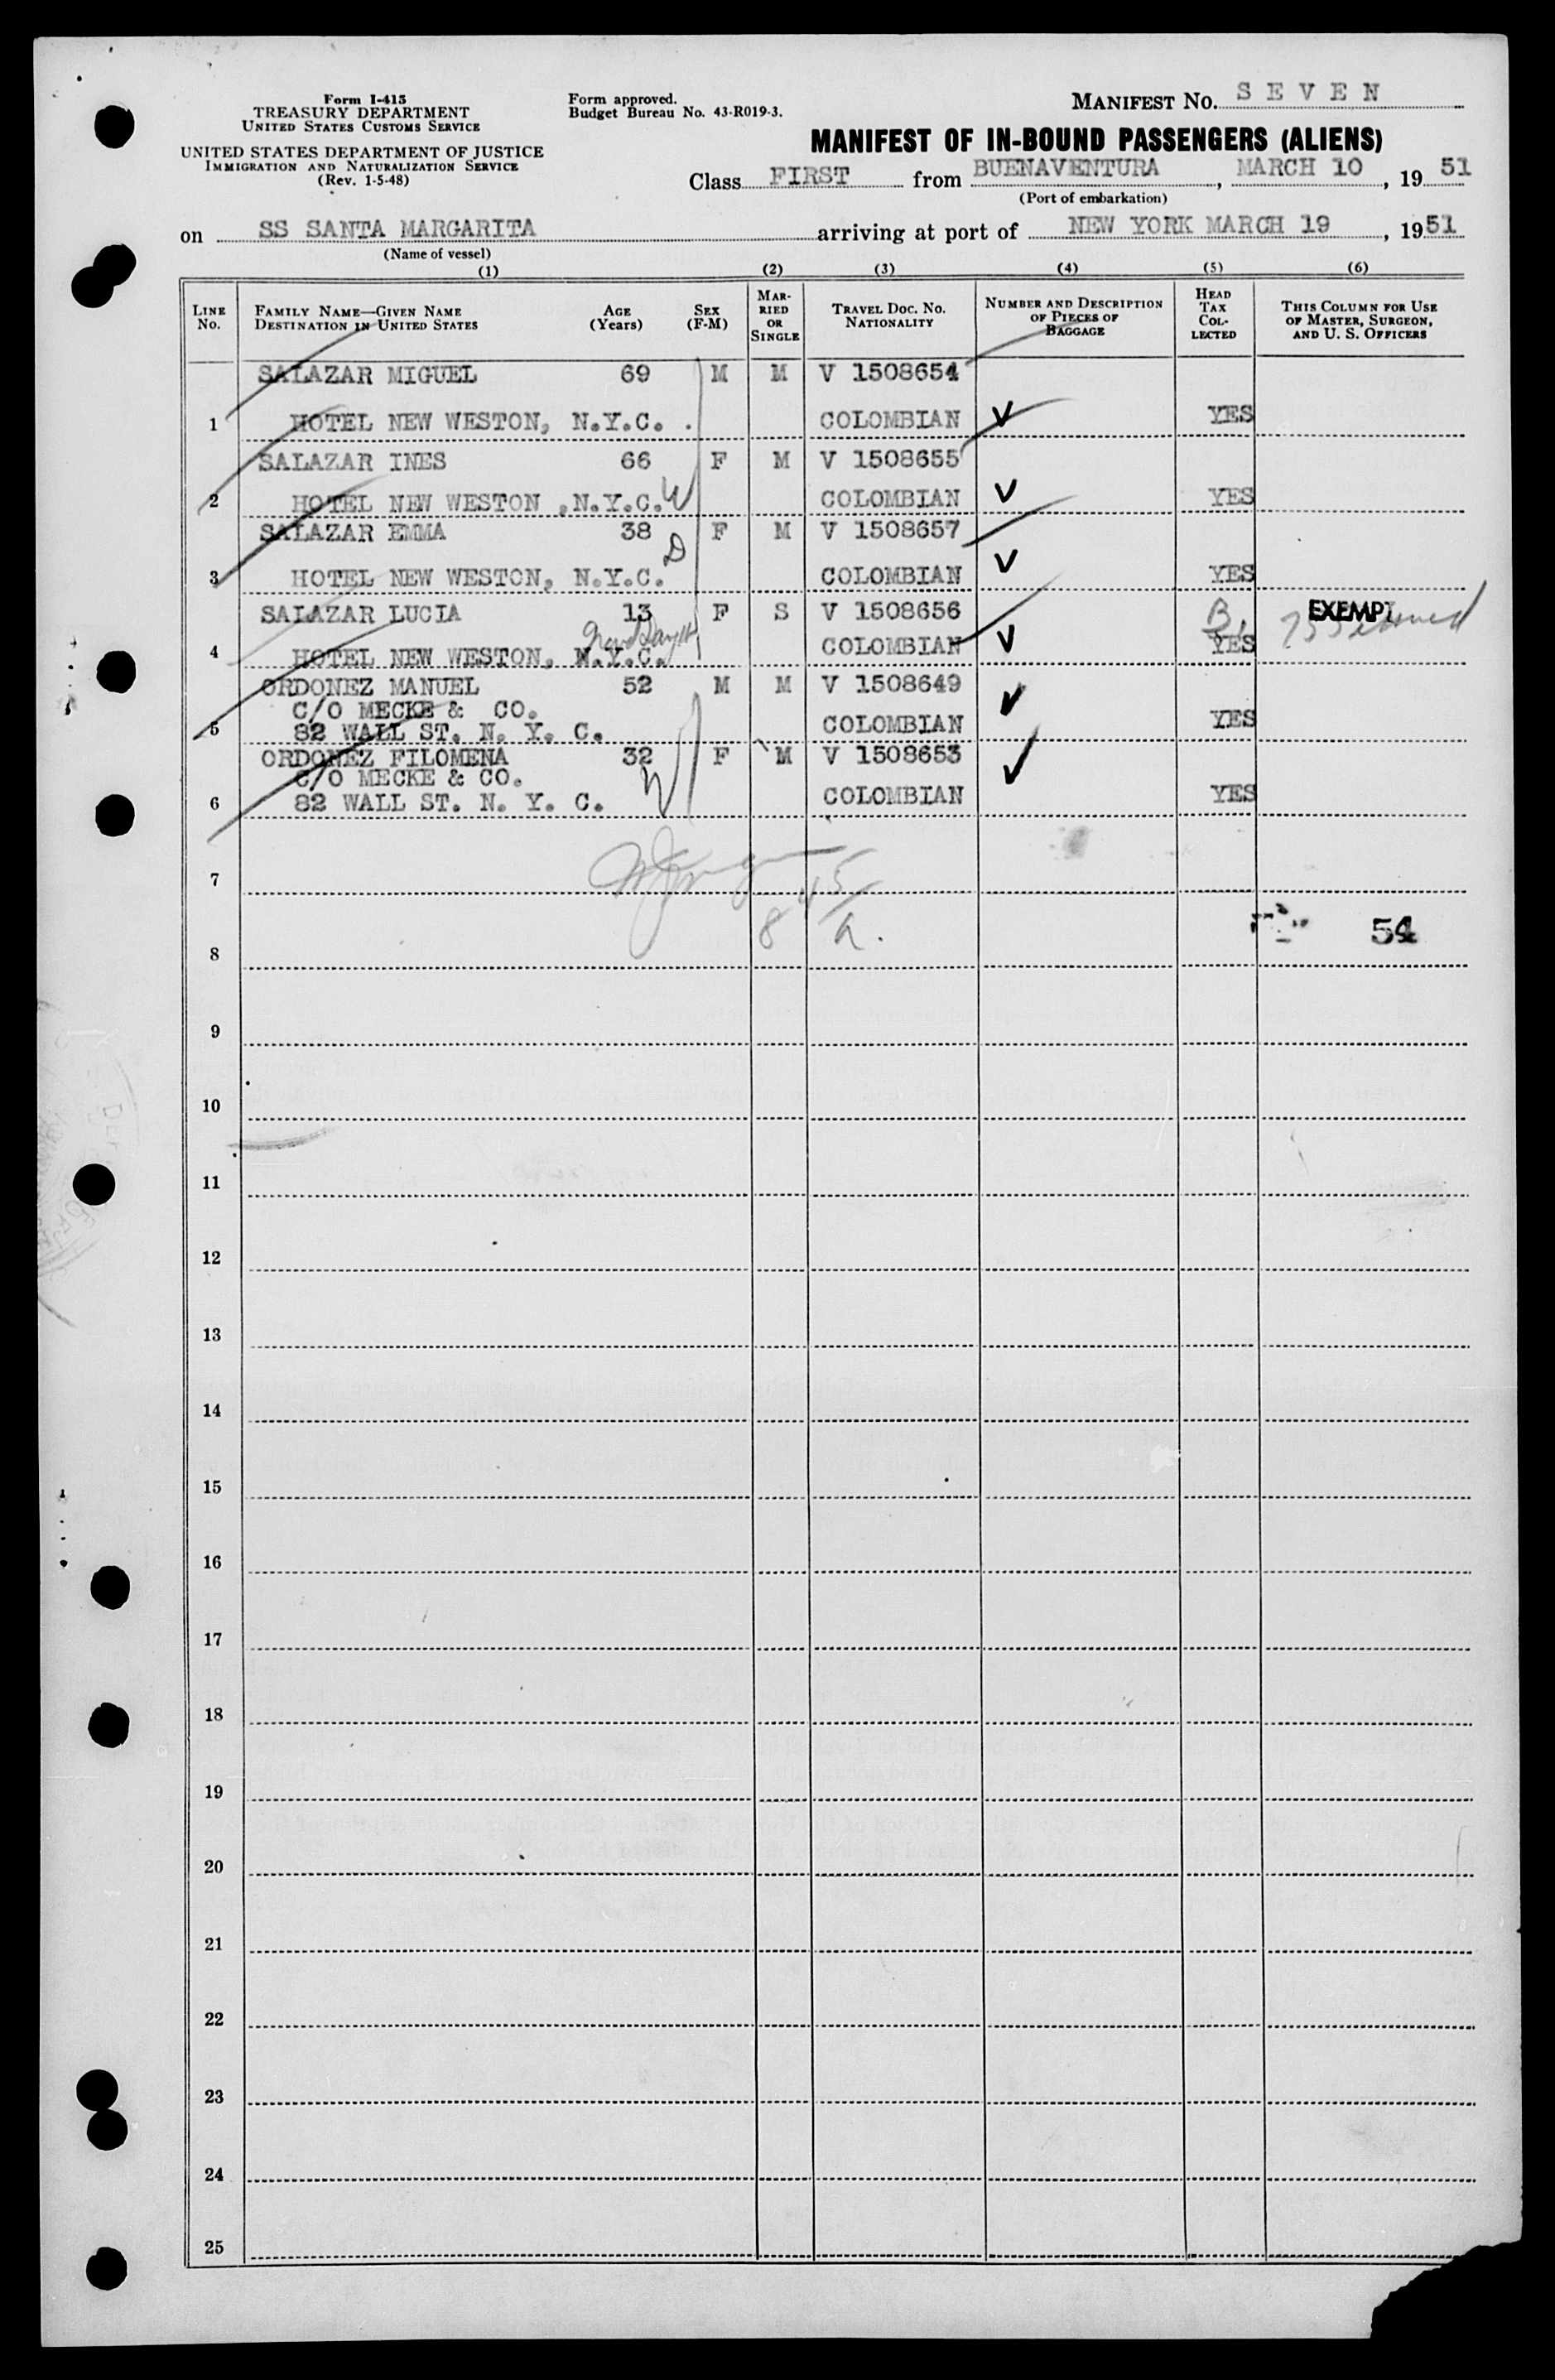 Form I-415
TREASURY DEPARTMENT
UNITED STATES CUSTOMS SERVICE
UNITED STATES DEPARTMENT OF JUSTICE
IMMIGRATION AND NATURALIZATION SERVICE
(Rev. 1-5-48)
Form approved.
Budget Bureau No. 43-R019-3.
MANIFEST NO. SEVEN
MANIFEST OF IN-BOUND PASSENGERS (ALIENS)
Class FIRST from BUENAVENTURA, MARCH 10, 1951
(Port of embarkation)
on SS SANTA MARGARITA arriving at port of NEW YORK MARCH 19, 1951
(Name of vessel)
(1) (2) (3) (4) (5) (6)
LINE No. FAMILY NAME—GIVEN NAME DESTINATION IN UNITED STATES AGE (Years) SEX (F-M) MARRIED OR SINGLE TRAVEL DOC. NO. NATIONALITY NUMBER AND DESCRIPTION OF PIECES OF BAGGAGE HEAD TAX COLLECTED THIS COLUMN FOR USE OF MASTER, SURGEON, AND U. S. OFFICERS
SALAZAR MIGUEL 69 M M V 1508654
1 HOTEL NEW WESTON, N.Y.C. . COLOMBIAN V YES
SALAZAR INES 66 F M V 1508655
2 HOTEL NEW WESTON ,N.Y.C. W COLOMBIAN V YES
SALAZAR EMMA 38 F M V 1508657
D
3 HOTEL NEW WESTON, N.Y.C. COLOMBIAN V YES
SALAZAR LUCIA 13 F S V 1508656 B. EXEMPT
4 HOTEL NEW WESTON, N.Y.C. COLOMBIAN V YES
ORDONEZ MANUEL 52 M M V 1508649
C/O MECKE & CO.
5 82 WALL ST. N. Y. C. COLOMBIAN YES
ORDONEZ FILOMENA 32 F M V 1508653
C/O MECKE & CO. W
6 82 WALL ST. N. Y. C. COLOMBIAN YES
7
8 54
9
10
11
12
13
14
15
16
17
18
19
20
21
22
23
24
25